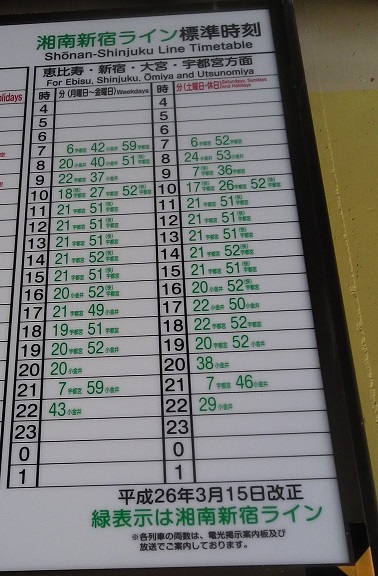 湘南新宿ライン標準時刻
Shōnan-Shinjuku Line Timetable
恵比寿・新宿・大宮・宇都宮方面
For Ebisu, Shinjuku, Ōmiya and Utsunomiya
olidays
時 分(月曜日～金曜日)Weekdays 時 分(土曜日・休日)Saturdays, Sundays and Holidays
4 4
5 5
6 6
7 6宇都宮 42小金井 59宇都宮 7 6宇都宮 52宇都宮
8 20小金井 40小金井 51(快)宇都宮 8 24小金井 53小金井
9 22小金井 37小金井 9 7 36宇都宮
10 18(快)宇都宮 27宇都宮 52(快)宇都宮 10 17(快)宇都宮 26宇都宮 52(快)宇都宮
11 21宇都宮 51(快)宇都宮 11 21宇都宮 51(快)宇都宮
12 21宇都宮 51(快)宇都宮 12 21宇都宮 51(快)宇都宮
13 21宇都宮 51(快)宇都宮 13 21宇都宮 51(快)宇都宮
14 21宇都宮 52(快)宇都宮 14 21宇都宮 52(快)宇都宮
15 21宇都宮 51(快)宇都宮 15 21宇都宮 51(快)宇都宮
16 20小金井 52(快)宇都宮 16 20小金井 52(快)宇都宮
17 21宇都宮 49小金井 17 22小金井 50小金井
18 19宇都宮 51宇都宮 18 22宇都宮 52宇都宮
19 20宇都宮 52小金井 19 20宇都宮 52小金井
20 20小金井 20 38小金井
21 7宇都宮 59小金井 21 7宇都宮 46小金井
22 43小金井 22 29小金井
23 23
0 0
1 1
平成26年3月15日改正
緑表示は湘南新宿ライン
※各列車の両数は、電光掲示案内板及び
放送でご案内しております。